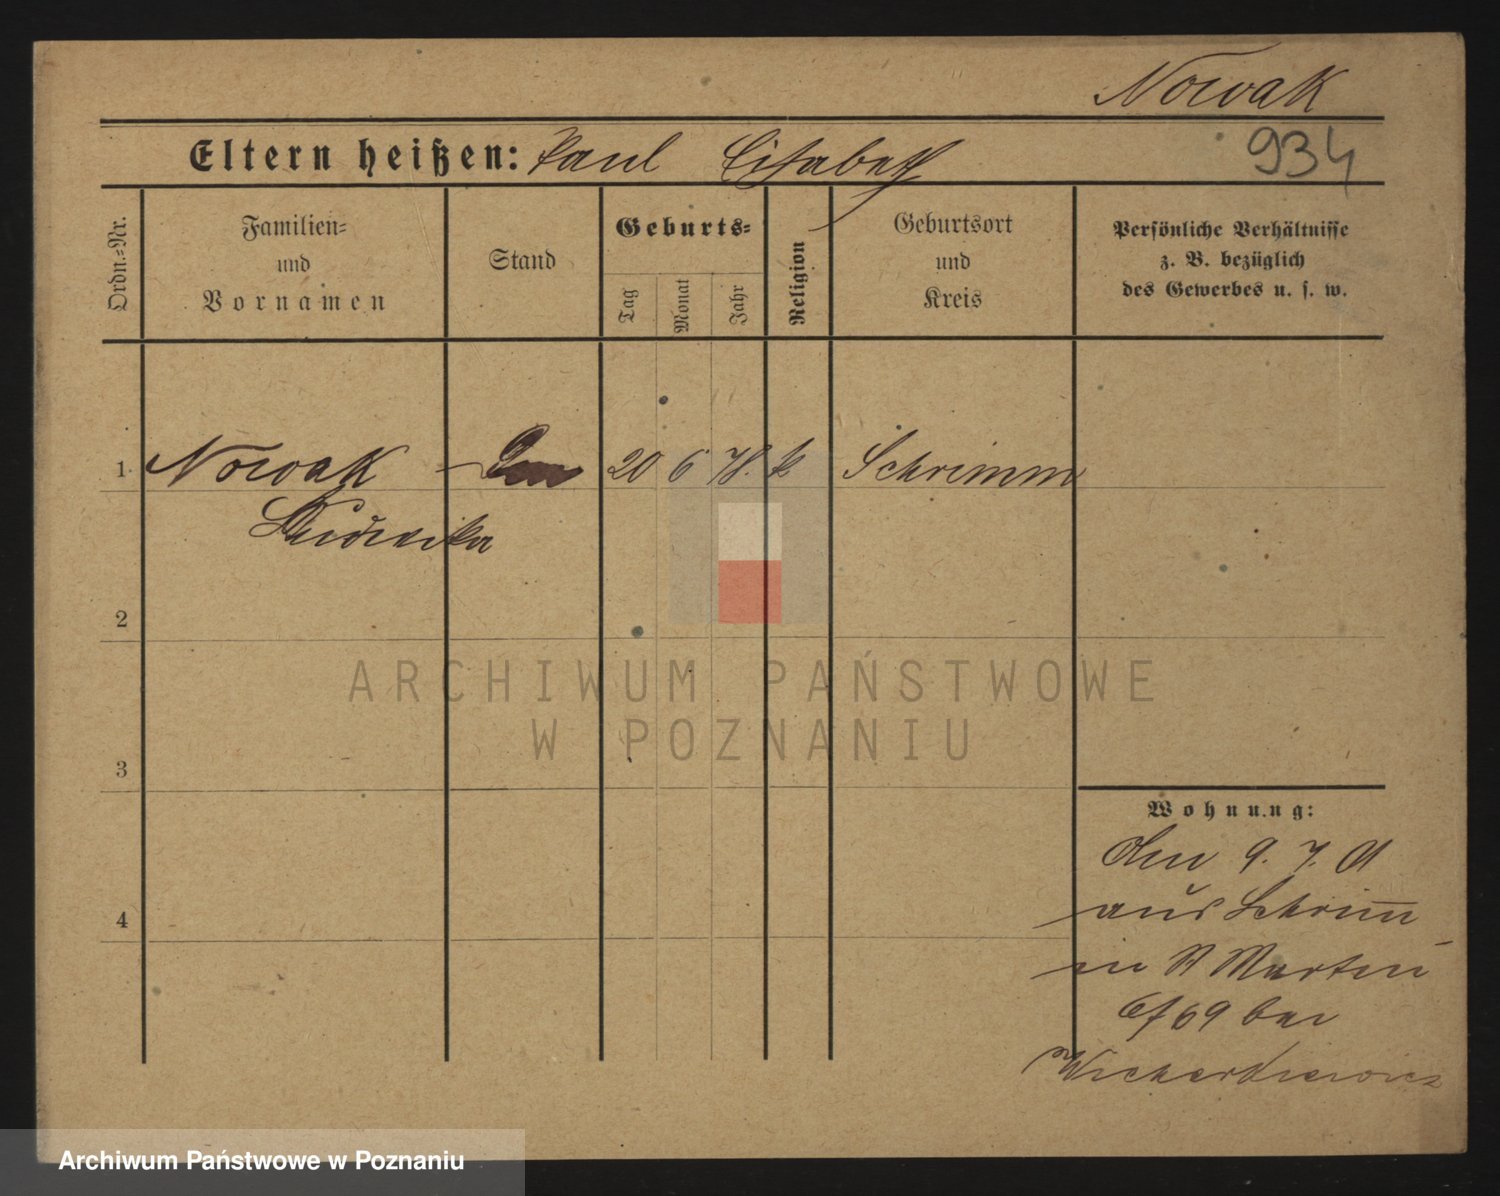 Nowak
Eltern heißen: Paul Elisabeth
934
Ordn.-Nr.
Familien-
und
Vornamen
Stand
Geburts-
Tag
Monat
Jahr
Religion
Geburtsort
und
Kreis
Persönliche Verhältnisse
z. B. bezüglich
des Gewerbes u. s. w.
1 Nowak 20 6 78. k Schrimm
Ludwika
2
3
4
Wohnung:
Den 9. 7. 01
aus Schrimm
in St Martin
69 bei
ARCHIWUM PAŃSTWOWE
W POZNANIU
Archiwum Państwowe w Poznaniu